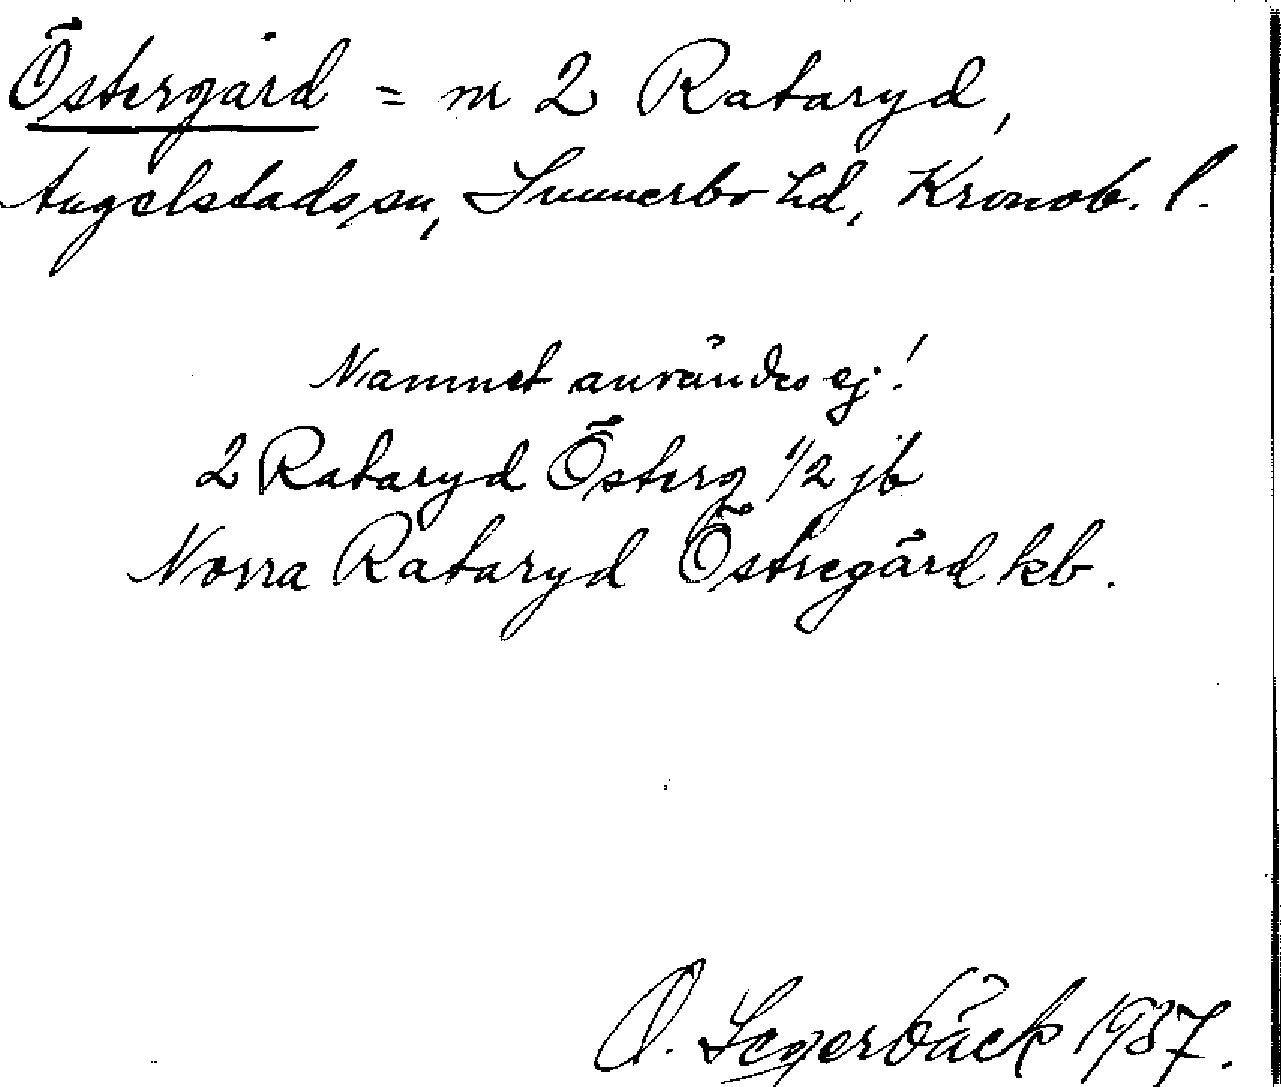 Östergård = nr 2 Rataryd,
Angelstads sn, Sunnerbo hd, Kronob. l.
Namnet användes ej!
2 Rataryd Österg 1/2 jb
Norra Rataryd Östregård kb.
O. Segerbäck 1937.